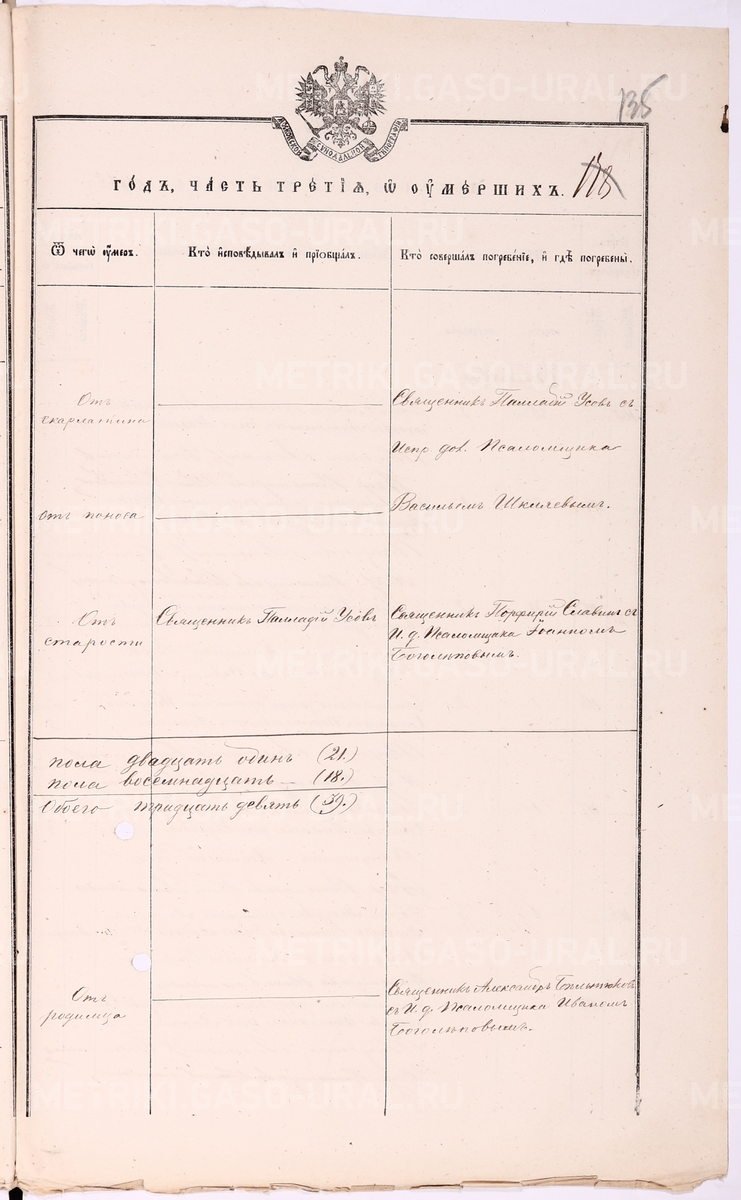 135
МОСКОВСКОЙ СѴНОДАЛЬНОЙ ТИПОГРАФІИ
118
го́дъ, ча́сть тре́тїѧ, ѡ҆ ᲂу҆ме́ршихъ.
Ѿ чегѡ̀ ᲂу҆́меръ.
Кто̀ и҆сповѣ́дывалъ и҆ прїѻбща́лъ.
Кто̀ соверша́лъ погребе́нїе, и҆ гдѣ̀ погребены̀.
Отъ
скарлатины
Священникъ Палладій Усовъ съ
Испр. дол. Псаломщика
отъ поноса
Васильемъ Шкляевымъ.
Отъ
старости
Священникъ Палладій Усовъ
Священникъ Порфирій Славинъ съ
И. д. Псаломщика Іоанномъ
Боголѣповымъ.
пола двадцать одинъ (21.)
пола восемнадцать (18.)
Обоего тридцать девять (39.)
Отъ
родимца
Священникъ Александръ
съ И. д. Псаломщика Иваномъ
Боголѣповымъ.
METRIKI.GASO-URAL.RU